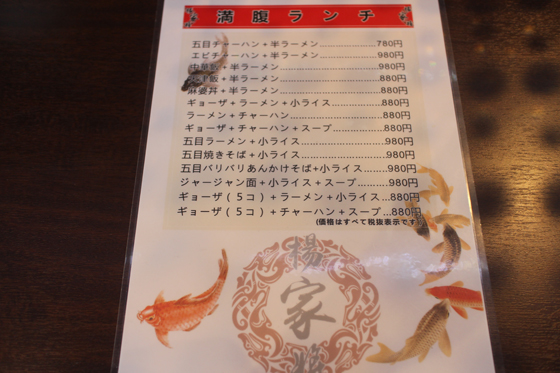 満腹ランチ
五目チャーハン＋半ラーメン…………………780円
エビチャーハン＋半ラーメン…………………980円
中華飯＋半ラーメン……………………………980円
天津飯＋半ラーメン……………………………880円
麻婆丼＋半ラーメン……………………………880円
ギョーザ＋ラーメン＋小ライス………………880円
ラーメン＋チャーハン…………………………880円
ギョーザ＋チャーハン＋スープ………………880円
五目ラーメン＋小ライス………………………980円
五目焼きそば＋小ライス………………………980円
五目バリバリあんかけそば+小ライス………980円
ジャージャン面＋小ライス＋スープ…………980円
ギョーザ（５コ）＋ラーメン＋小ライス…880円
ギョーザ（５コ）＋チャーハン＋スープ…880円
(価格はすべて税抜表示です)
楊
家